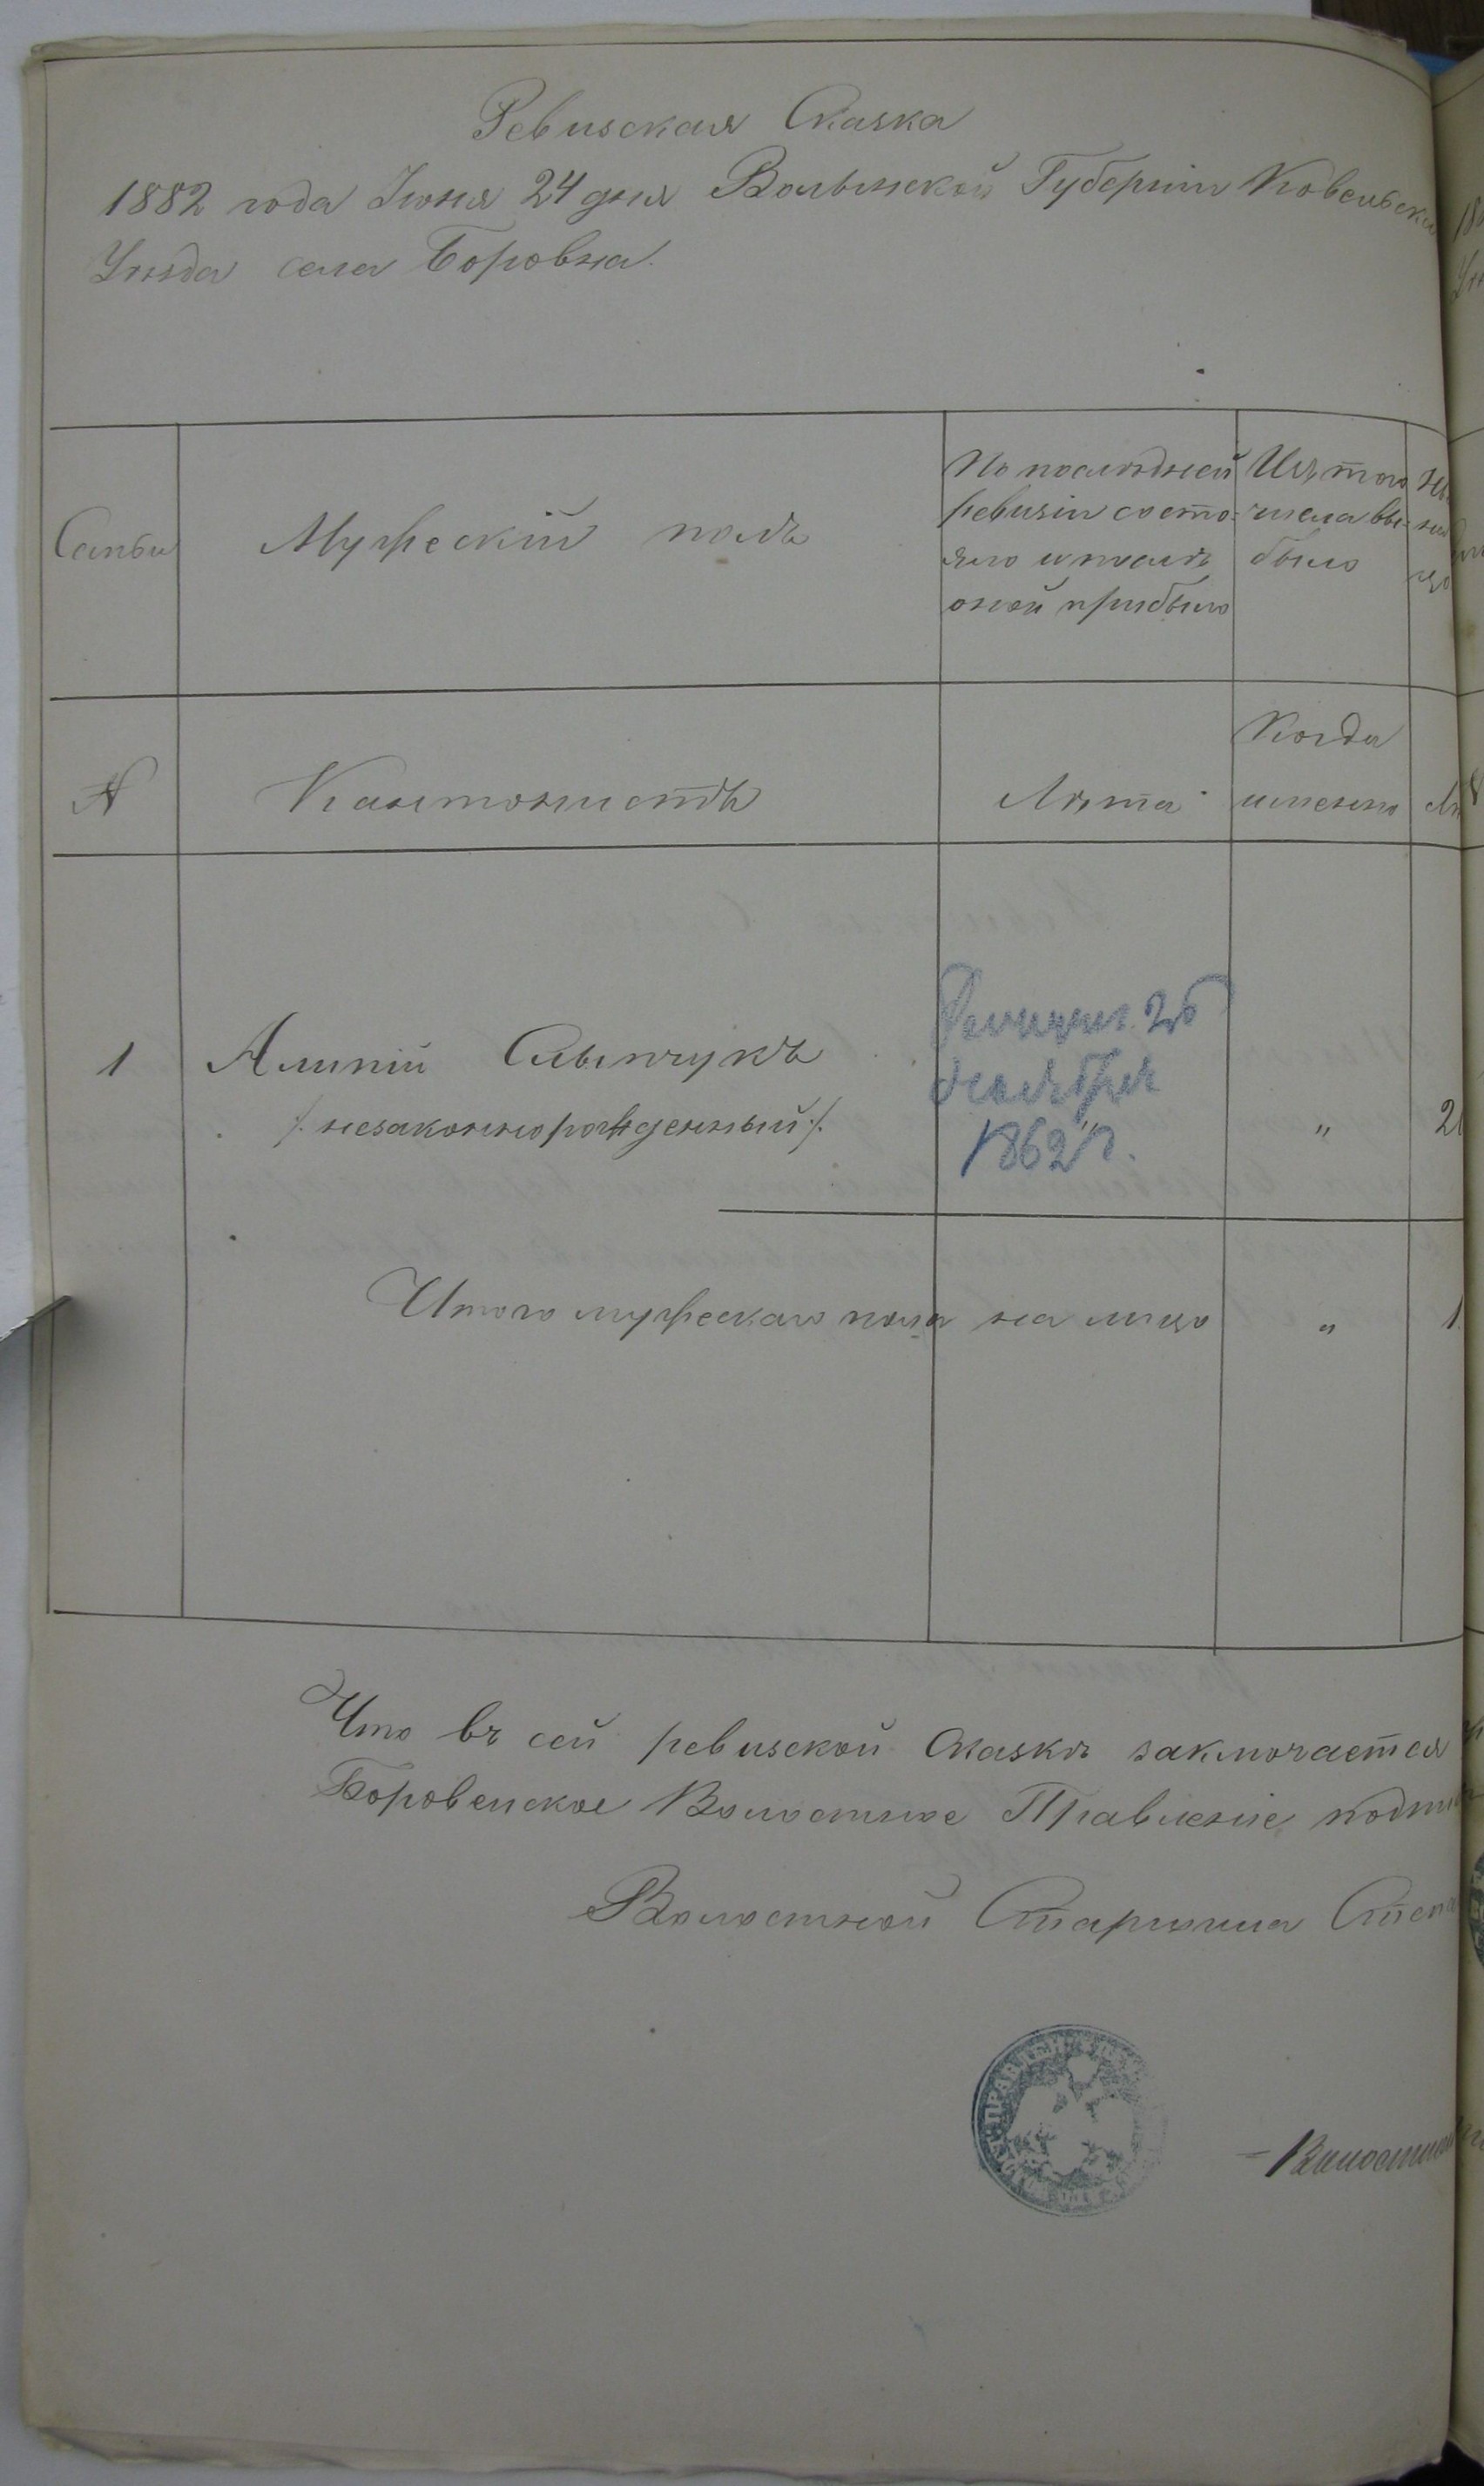 Ревизская Сказка
1882 года Іюня 24 дня Волынской Губерніи Ковельска
Уѣзда села Боровна.
Семьи
Мужескій полъ
По послѣдней
ревизіи состо-
яло и послѣ
оной прибыло
Изъ того
числа вы-
было
№
Кантонистъ
Лѣта
Когда
именно
1
Алипій Сынчукъ
/. незаконнорожденный ./
26
декабря
1862 г.
"
2
Итого мужескаго пола на лицо
"
1.
Что въ сей ревизской сказкѣ заключается
Боровенское Волостное Правленіе
Волостной Старшина